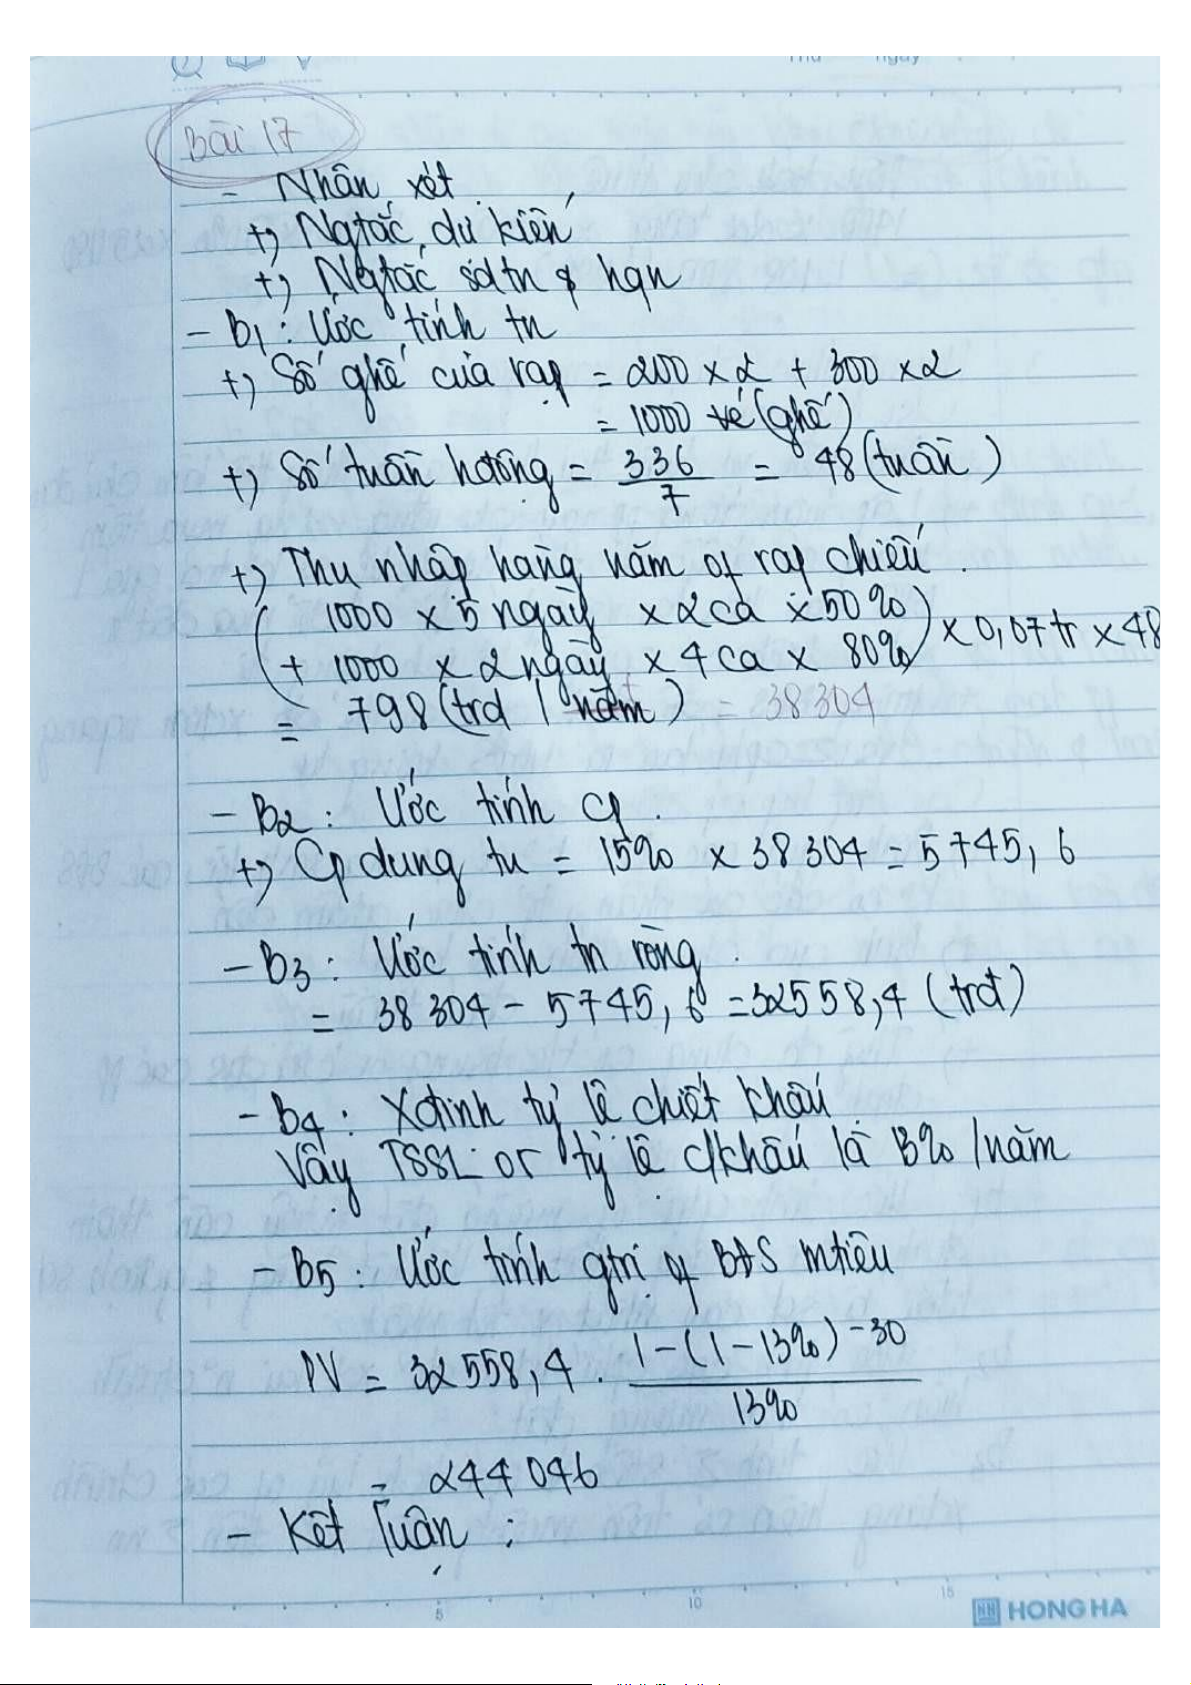 Thứ ngày
Bài 17
- Nhân xét.
+) Ngtắc dự kiến
+) Ngtắc sdtn & hqn
- B1: Ước tính tn
+) Số ghế của rạp = 200 x 2 + 300 x 2
= 1000 vé (ghế)
+) Số tuần hđộng = 336/7 = 48 (tuần)
+) Thu nhập hàng năm of rạp chiếu.
(1000 x 5 ngày x 2 ca x 50%
+ 1000 x 2 ngày x 4 ca x 80%) x 0,07 tr x 48
= 798 (trđ / năm) = 38304
- B2: Ước tính cp.
+) Cp dung tu = 15% x 38 304 = 5745,6
- B3: Ước tính tn ròng.
= 38 304 - 5745,6 = 32558,4 (trđ)
- B4: Xđịnh tỷ lệ chiết khấu
Vậy TSSL or tỷ lệ c/khấu là 13% /năm
- B5: Ước tính gtrị of BĐS mtiêu
PV = 32 558,4 . 1-(1-13%)^-30 / 13%
= 244 046
- Kết luận:
5 10 15
HONG HA